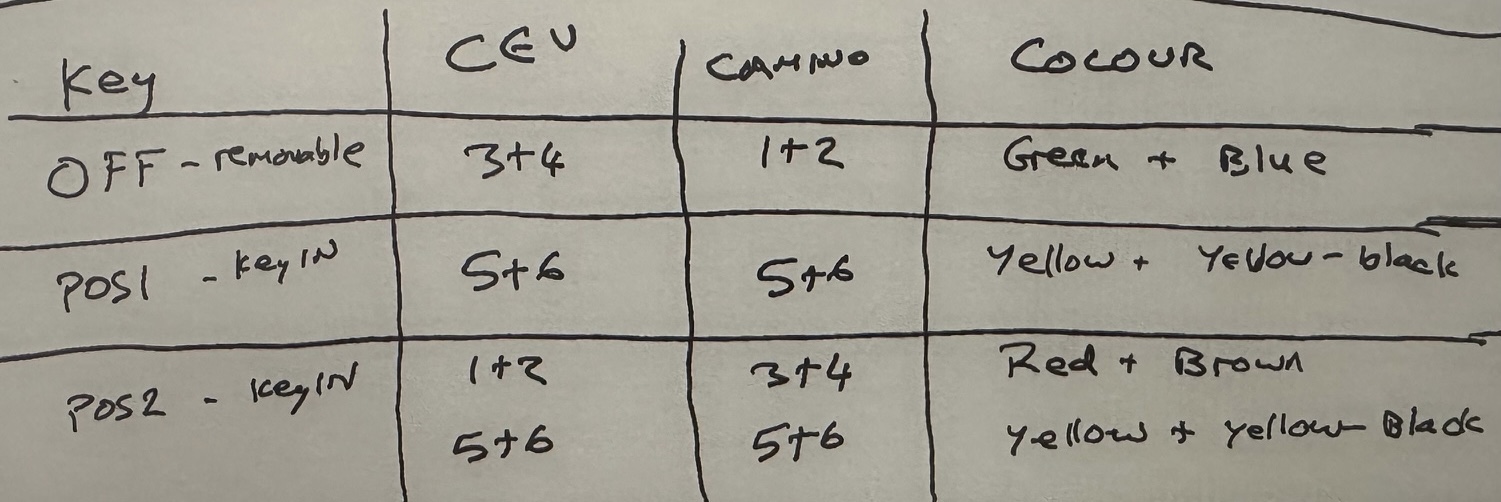 Key CEV CAMINO COLOUR
OFF - removable 3+4 1+2 Green + Blue
POS1 - key IN 5+6 5+6 Yellow + Yellow-black
POS2 - key IN 1+2 3+4 Red + Brown
5+6 5+6 yellow + yellow-Black